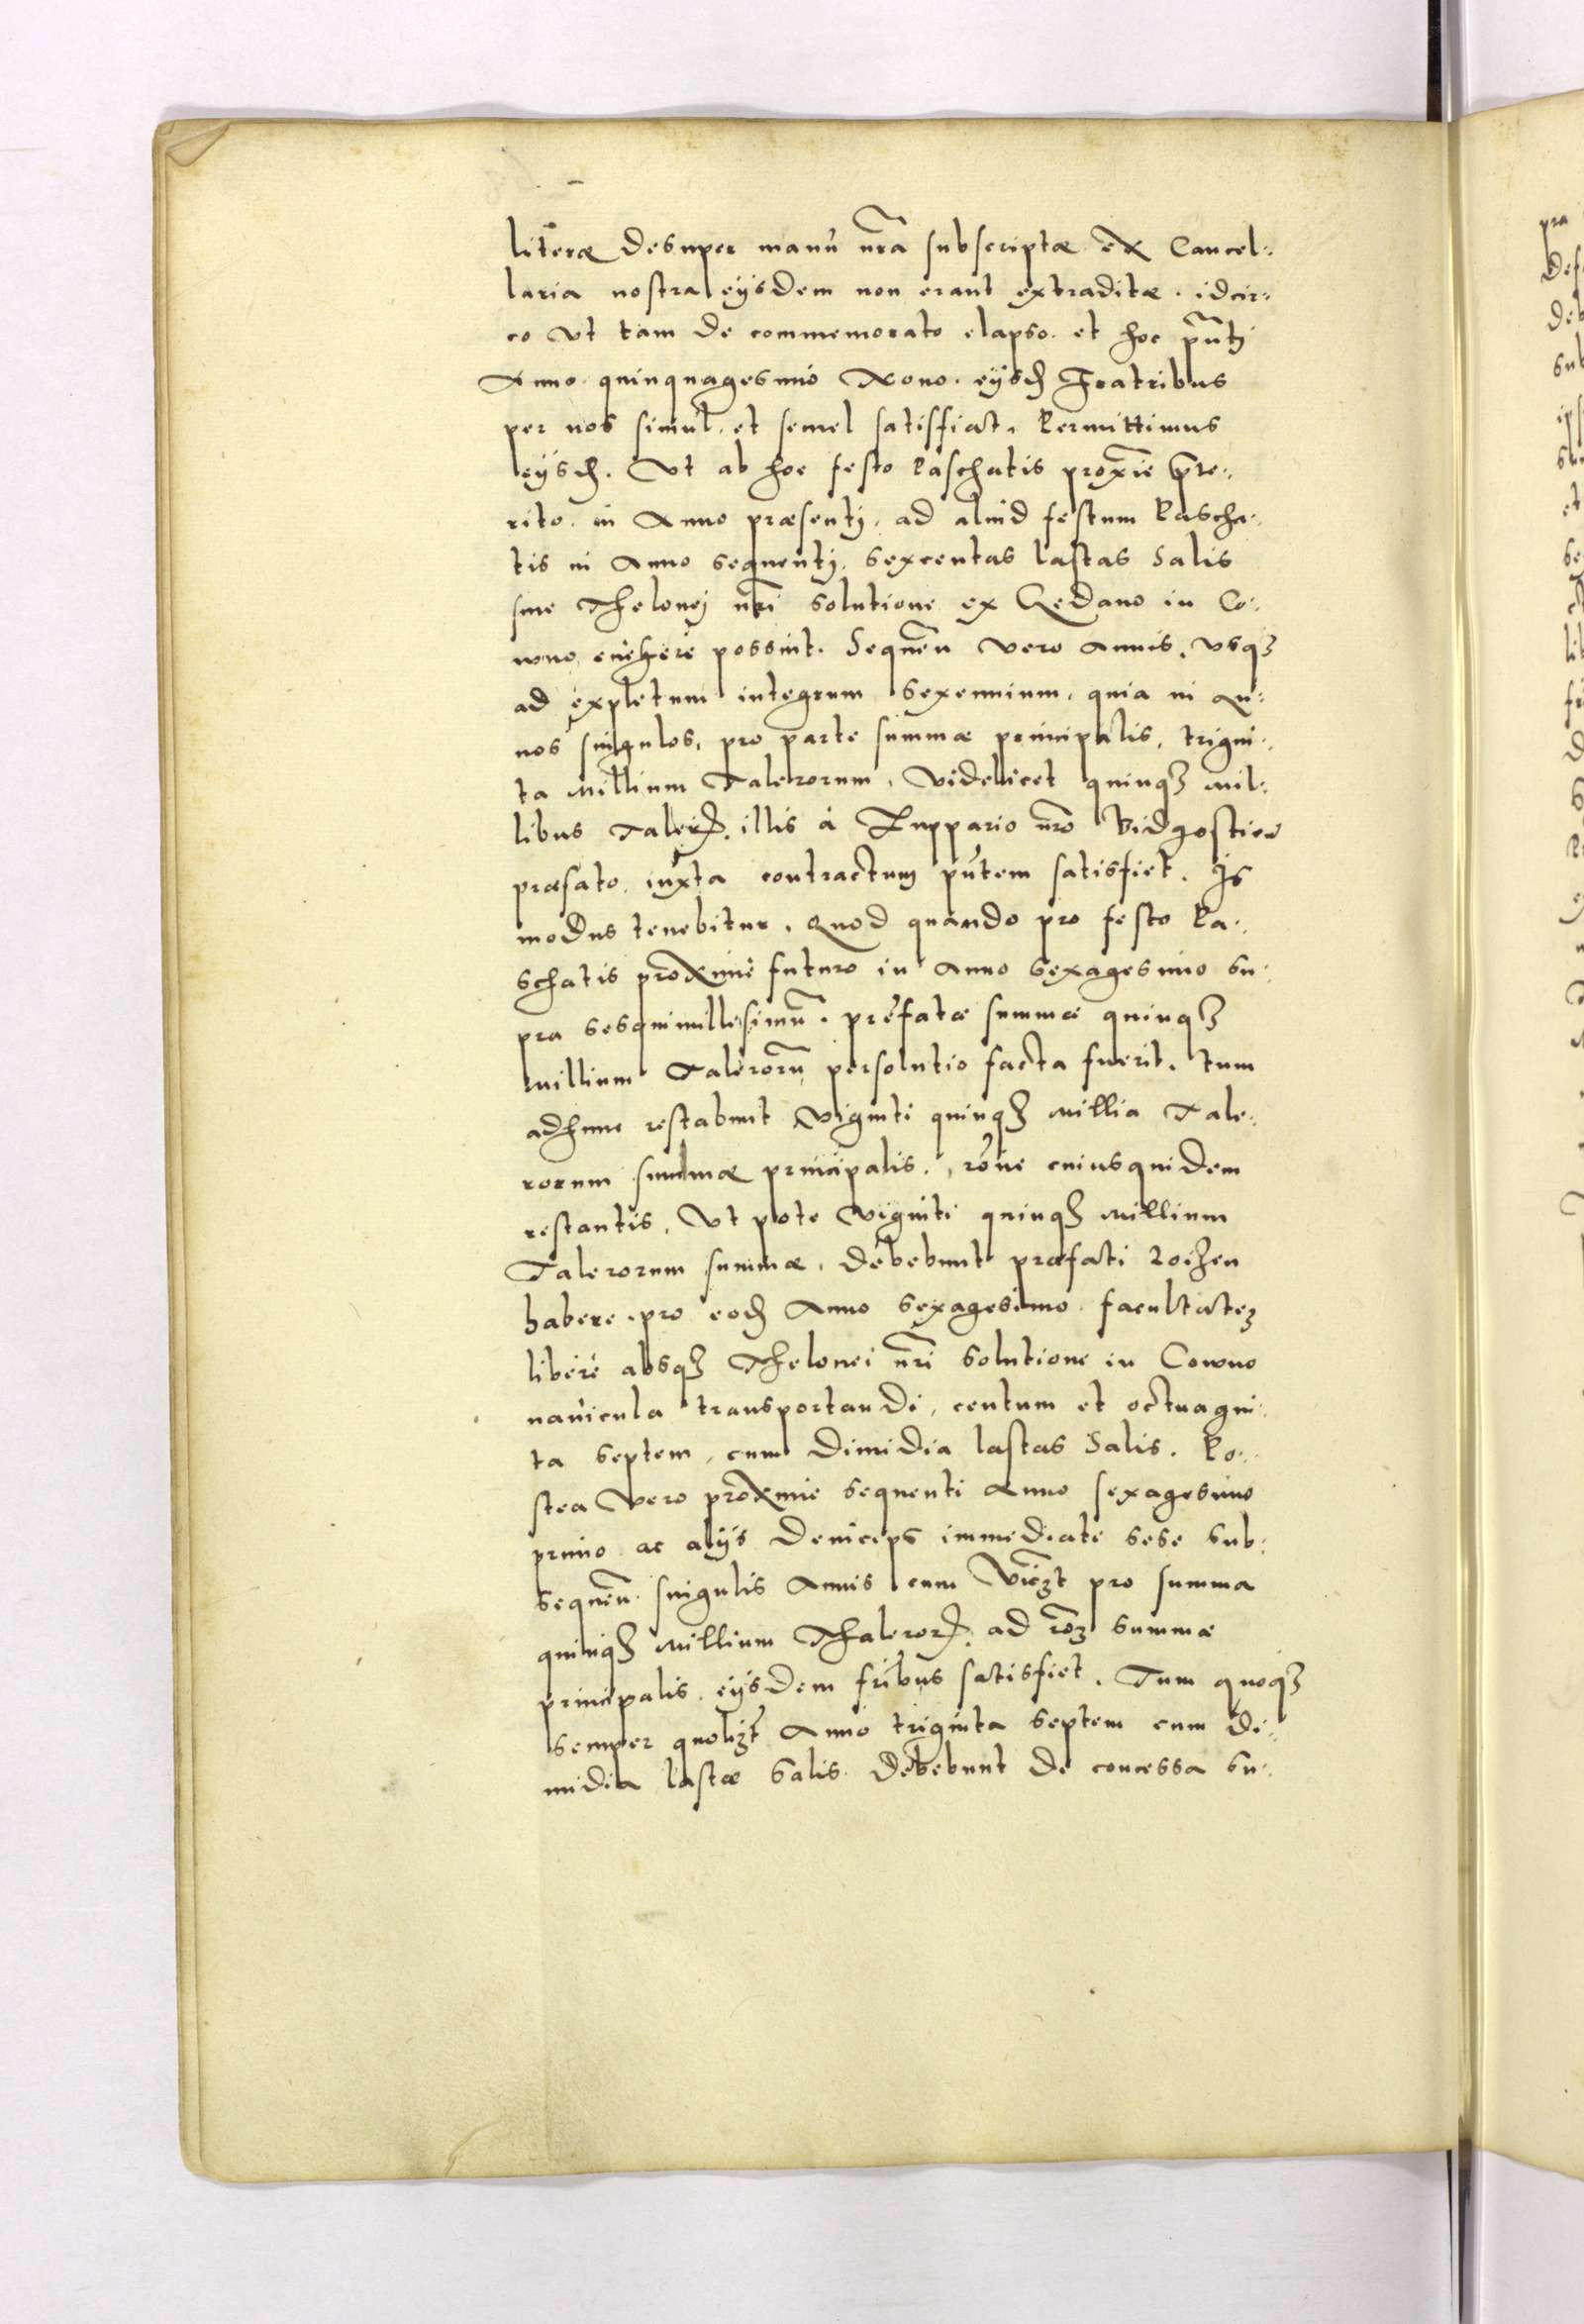 literæ desuper manu nr̃a subscriptæ ex Cancel:
laria nostra eÿsdem non erant extraditæ. idcir:
co Ut tam de commemorato elapso. et hoc pñtj
Anno quinquagesimo Nono. eÿsd Fratribus
per nos simul. et semel satisfiat. Permittimus
eÿsd. Ut ab hoc festo Paschatis proxime præte:
rito. in Anno præsentj. ad aliud festum Pascha:
tis in Anno sequentj. sexcentas lastas Salis
sine Thelonej nr̃i solutione ex Gedano in Co:
wno evehere possint. Sequeñ vero Annis. usqȝ
ad expletum integrum sexennium. quia in An:
nos singulos. pro parte summæ principalis. trigin:
ta Millium Talerorum. Videlicet quinqȝ Mil:
libus Taleror. illis à Zuppario nr̃o Bidgostien
præfato. iuxta contractum pñtem satisfiet. Is
modus tenebitur. Quod quando pro festo Pa:
schatis proxime futuro in Anno sexagesimo su:
pra sesquimillesimũ. præfatæ summæ quinqȝ
Millium Talerorũ persolutio facta fuerit. tum
adhuc restabunt Viginti quinqȝ Millia Tale:
rorum summæ principalis. rõne cuiusquidem
restantis. Ut pote Viginti quinqȝ Millium
Talerorum summæ. debebunt præfati Loiczen
habere. pro eod Anno sexagesimo. facultatem
liberè absqȝ Thelonei nr̃i solutione in Cowno
navicula transportandi, centum et octuagin:
ta septem, cum dimidia lastas Salis. Po:
stea Vero proxime sequenti Anno sexagesimo
primo ac alÿs deinceps immediate sese sub:
sequeñ. singulis Annis cum Vicȝt pro summa
quinqȝ Millium Thaleror. ad rõȝ summæ
principalis. eÿsdem fribus satisfiet. Tum quoqȝ
semper quolibȝt Anno triginta septem cum di:
midia lastæ Salis. debebunt de concessa su: